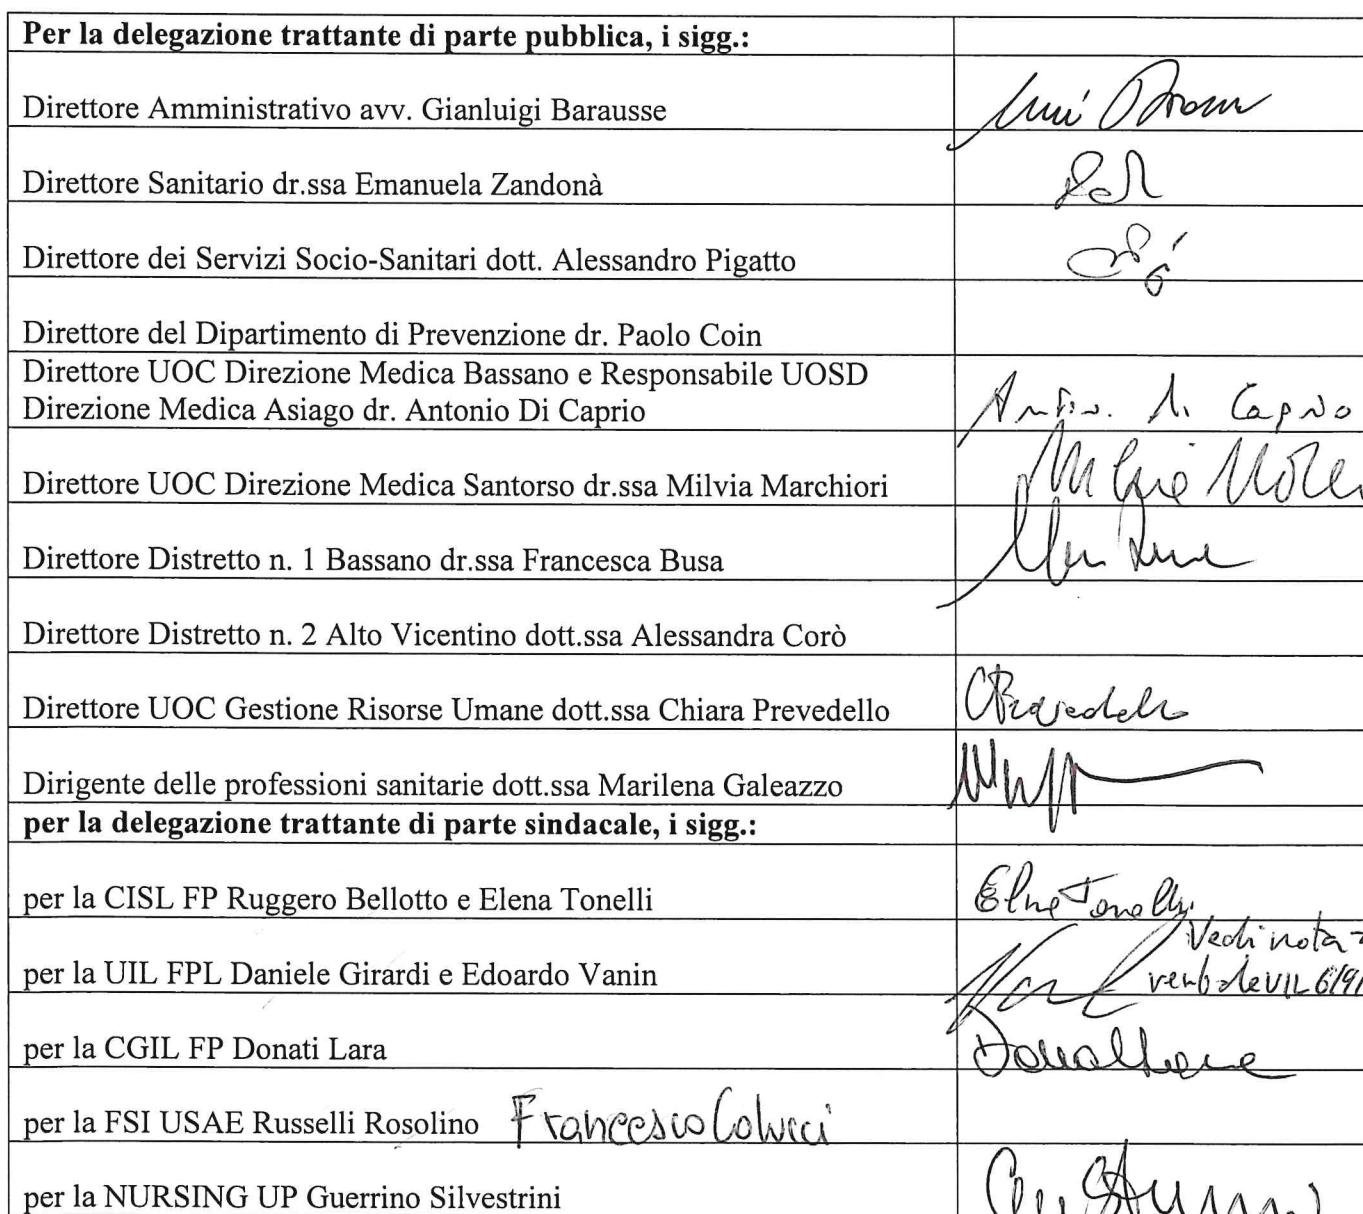 Per la delegazione trattante di parte pubblica, i sigg.:
Direttore Amministrativo avv. Gianluigi Barausse
Direttore Sanitario dr.ssa Emanuela Zandonà
Direttore dei Servizi Socio-Sanitari dott. Alessandro Pigatto
Direttore del Dipartimento di Prevenzione dr. Paolo Coin
Direttore UOC Direzione Medica Bassano e Responsabile UOSD
Direzione Medica Asiago dr. Antonio Di Caprio
Direttore UOC Direzione Medica Santorso dr.ssa Milvia Marchiori
Direttore Distretto n. 1 Bassano dr.ssa Francesca Busa
Direttore Distretto n. 2 Alto Vicentino dott.ssa Alessandra Corò
Direttore UOC Gestione Risorse Umane dott.ssa Chiara Prevedello
CPrevedello
Dirigente delle professioni sanitarie dott.ssa Marilena Galeazzo
per la delegazione trattante di parte sindacale, i sigg.:
per la CISL FP Ruggero Bellotto e Elena Tonelli
Elena Tonelli
Vedi nota
per la UIL FPL Daniele Girardi e Edoardo Vanin
verbale UIL 6/9/
per la CGIL FP Donati Lara
per la FSI USAE Russelli Rosolino Francesco Colucci
per la NURSING UP Guerrino Silvestrini